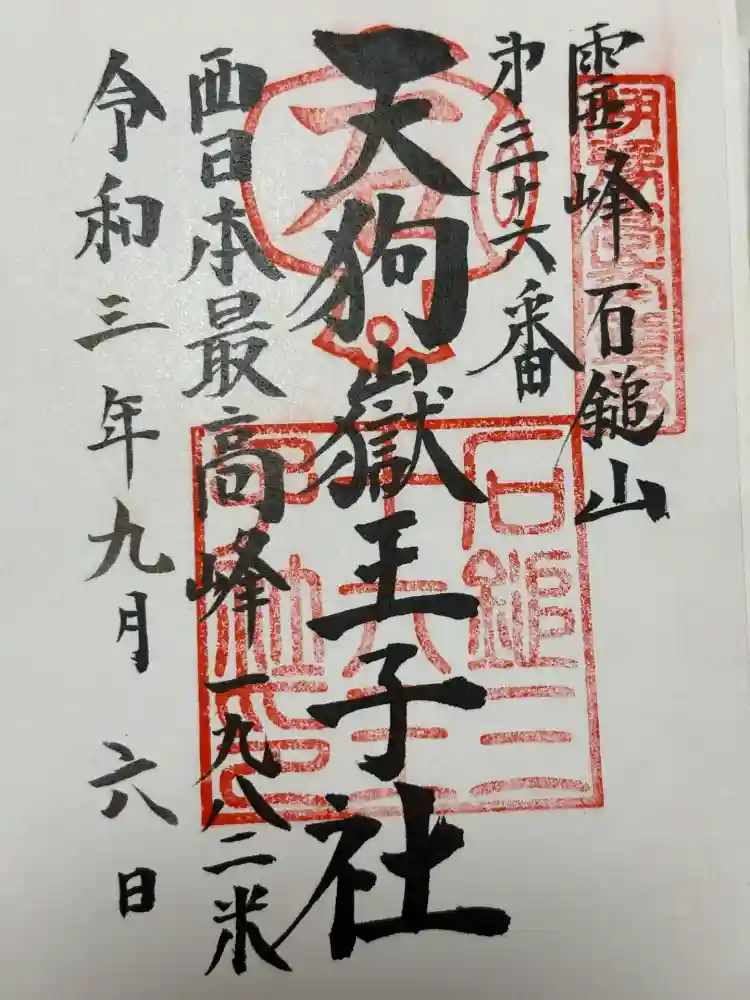 霊峰石鎚山
第三十六番
天狗嶽王子社
西日本最高峰一九八二米
令和三年九月六日
石鎚三
十六王
子社印